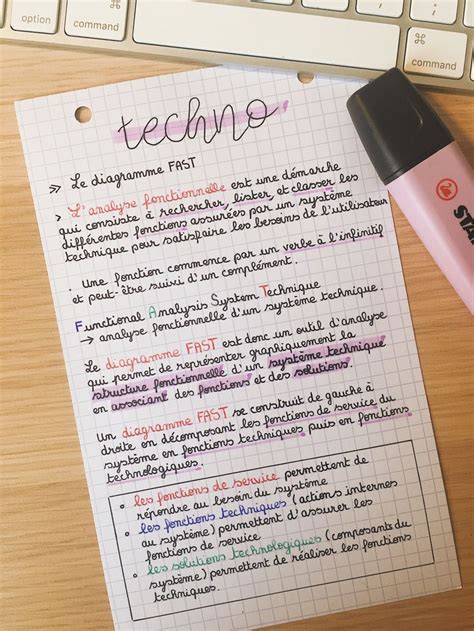 ⌘
command
option
⌘
command
option
STAB
techno
>> Le diagramme FAST
> L'analyse fonctionnelle est une démarche
qui consiste à rechercher, lister et classer les
différentes fonctions assurées par un système
technique pour satisfaire les besoins de l'utilisateur
· Une fonction commence par un verbe à l'infinitif
et peut-être suivi d'un complément.
Functional Analysis System Technique
→ analyse fonctionnelle d'un système technique.
Le diagramme FAST est donc un outil d'analyse
qui permet de représenter graphiquement la
structure fonctionnelle d'un système technique
en associant des fonctions et des solutions.
Un diagramme FAST se construit de gauche à
droite en décomposant les fonctions de service du
système en fonctions techniques puis en fonctions
technologiques.
• les fonctions de service permettent de
répondre au besoin du système
• les fonctions techniques (actions internes
au système) permettent d'assurer les
fonctions de service
• les solutions technologiques (composants du
système) permettent de réaliser les fonctions
techniques.